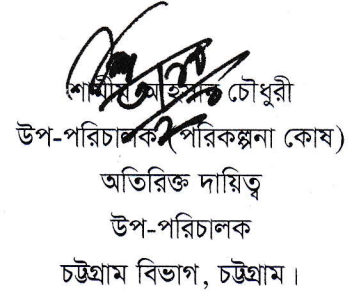 চৌধুরী
উপ-পরিচালক (পরিকল্পনা কোষ)
অতিরিক্ত দায়িত্ব
উপ-পরিচালক
চট্টগ্রাম বিভাগ, চট্টগ্রাম।